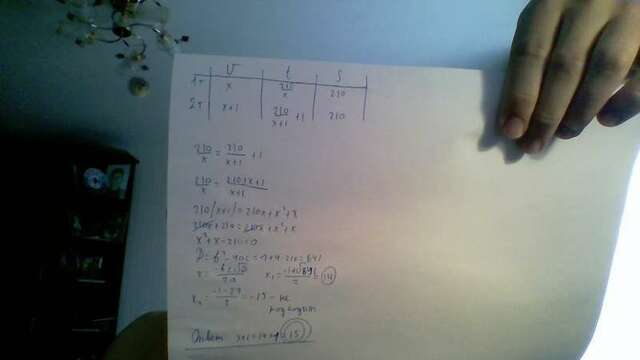 V t S
1т x 210/x 210
2т x+1 210/(x+1) +1 210
210/x = 210/(x+1) + 1
210/x = (210+x+1)/(x+1)
210(x+1)=210x+x²+x
210x+210=210x+x²+x
x²+x-210=0
D=b²-4ac=1+4·210=841
x₁ = = 14
x₂ = (-1-29)/2 = -15 - не
подходит
Ответ x+1=14+1=15